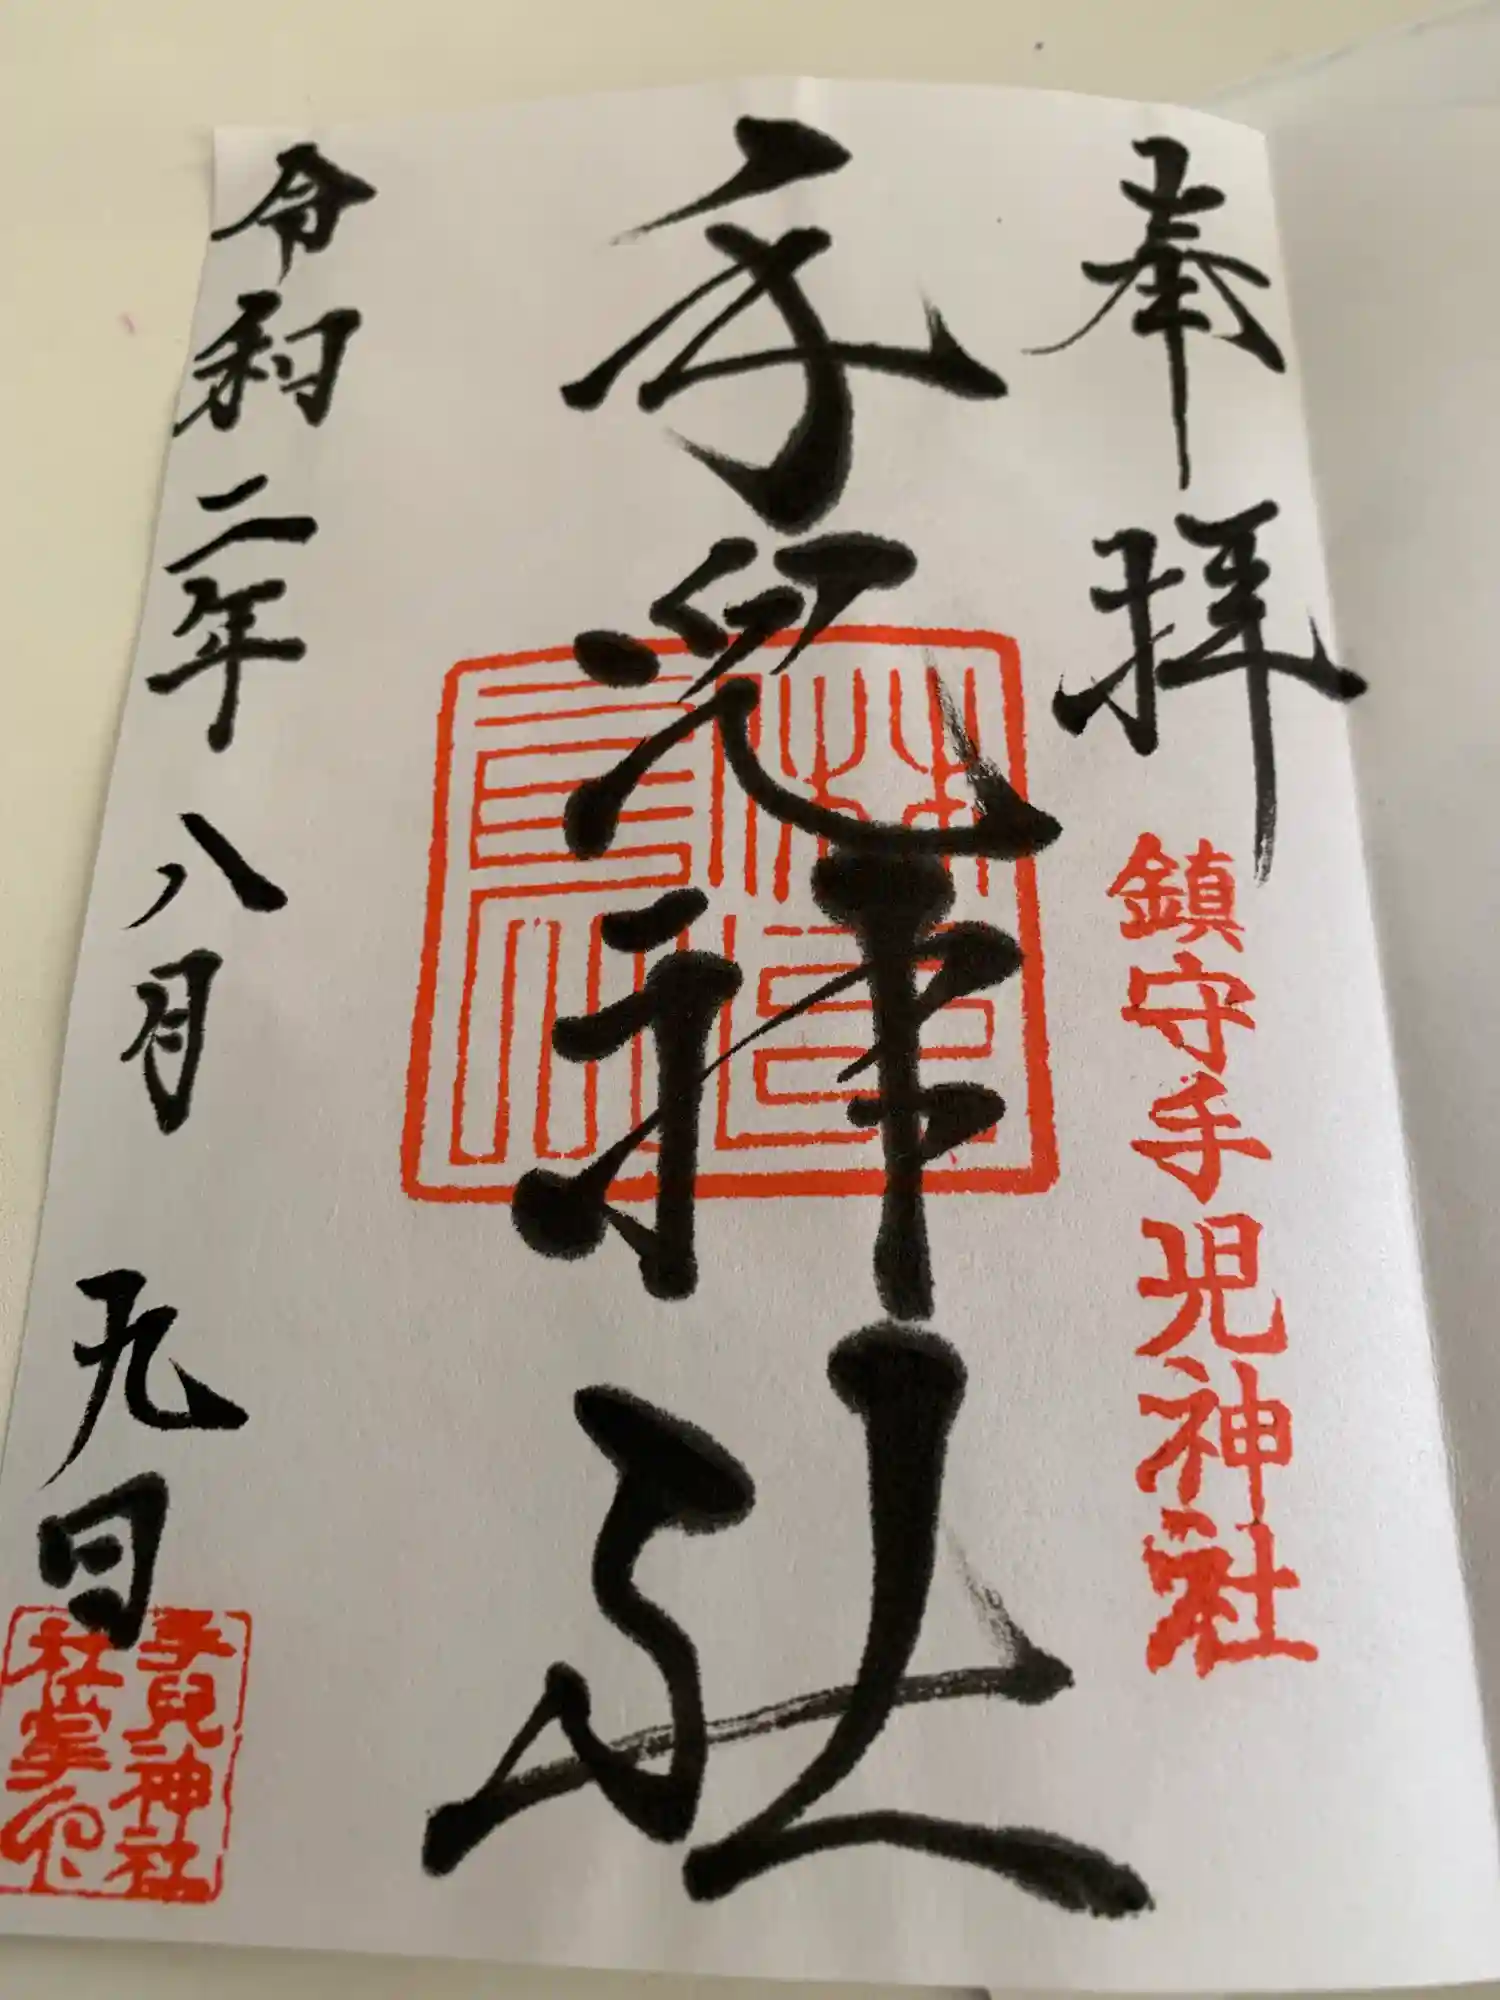 奉拝
鎮守手児神社
手児神社
令和二年八月九日
手兒神社
社掌印